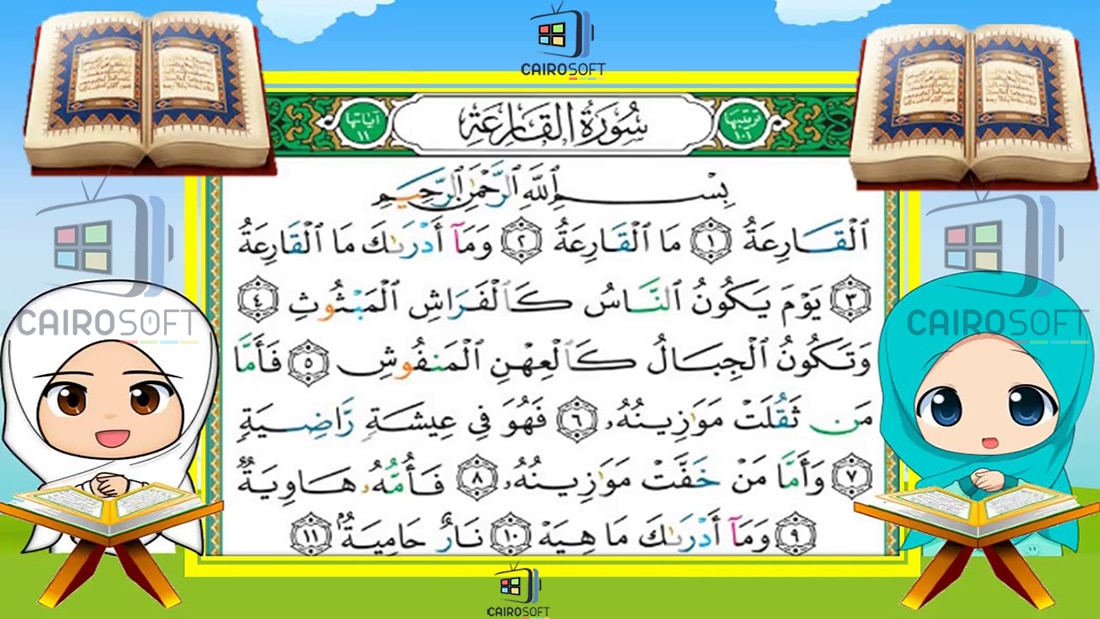 CAIROSOFT
سُورَةُ القَارِعَةِ
ترتيبها ١٠١
آياتها ١١
بِسْمِ ٱللَّهِ ٱلرَّحْمَٰنِ ٱلرَّحِيمِ
ٱلْقَارِعَةُ ١ مَا ٱلْقَارِعَةُ ٢ وَمَآ أَدْرَىٰكَ مَا ٱلْقَارِعَةُ
٣ يَوْمَ يَكُونُ ٱلنَّاسُ كَٱلْفَرَاشِ ٱلْمَبْثُوثِ ٤
وَتَكُونُ ٱلْجِبَالُ كَٱلْعِهْنِ ٱلْمَنفُوشِ ٥ فَأَمَّا
مَن ثَقُلَتْ مَوَٰزِينُهُۥ ٦ فَهُوَ فِي عِيشَةٍ رَّاضِيَةٍ
٧ وَأَمَّا مَنْ خَفَّتْ مَوَٰزِينُهُۥ ٨ فَأُمُّهُۥ هَاوِيَةٌ
٩ وَمَآ أَدْرَىٰكَ مَا هِيَهْ ١٠ نَارٌ حَامِيَةٌۢ ١١
CAIROSOFT
CAIROSOFT
CAIROSOFT